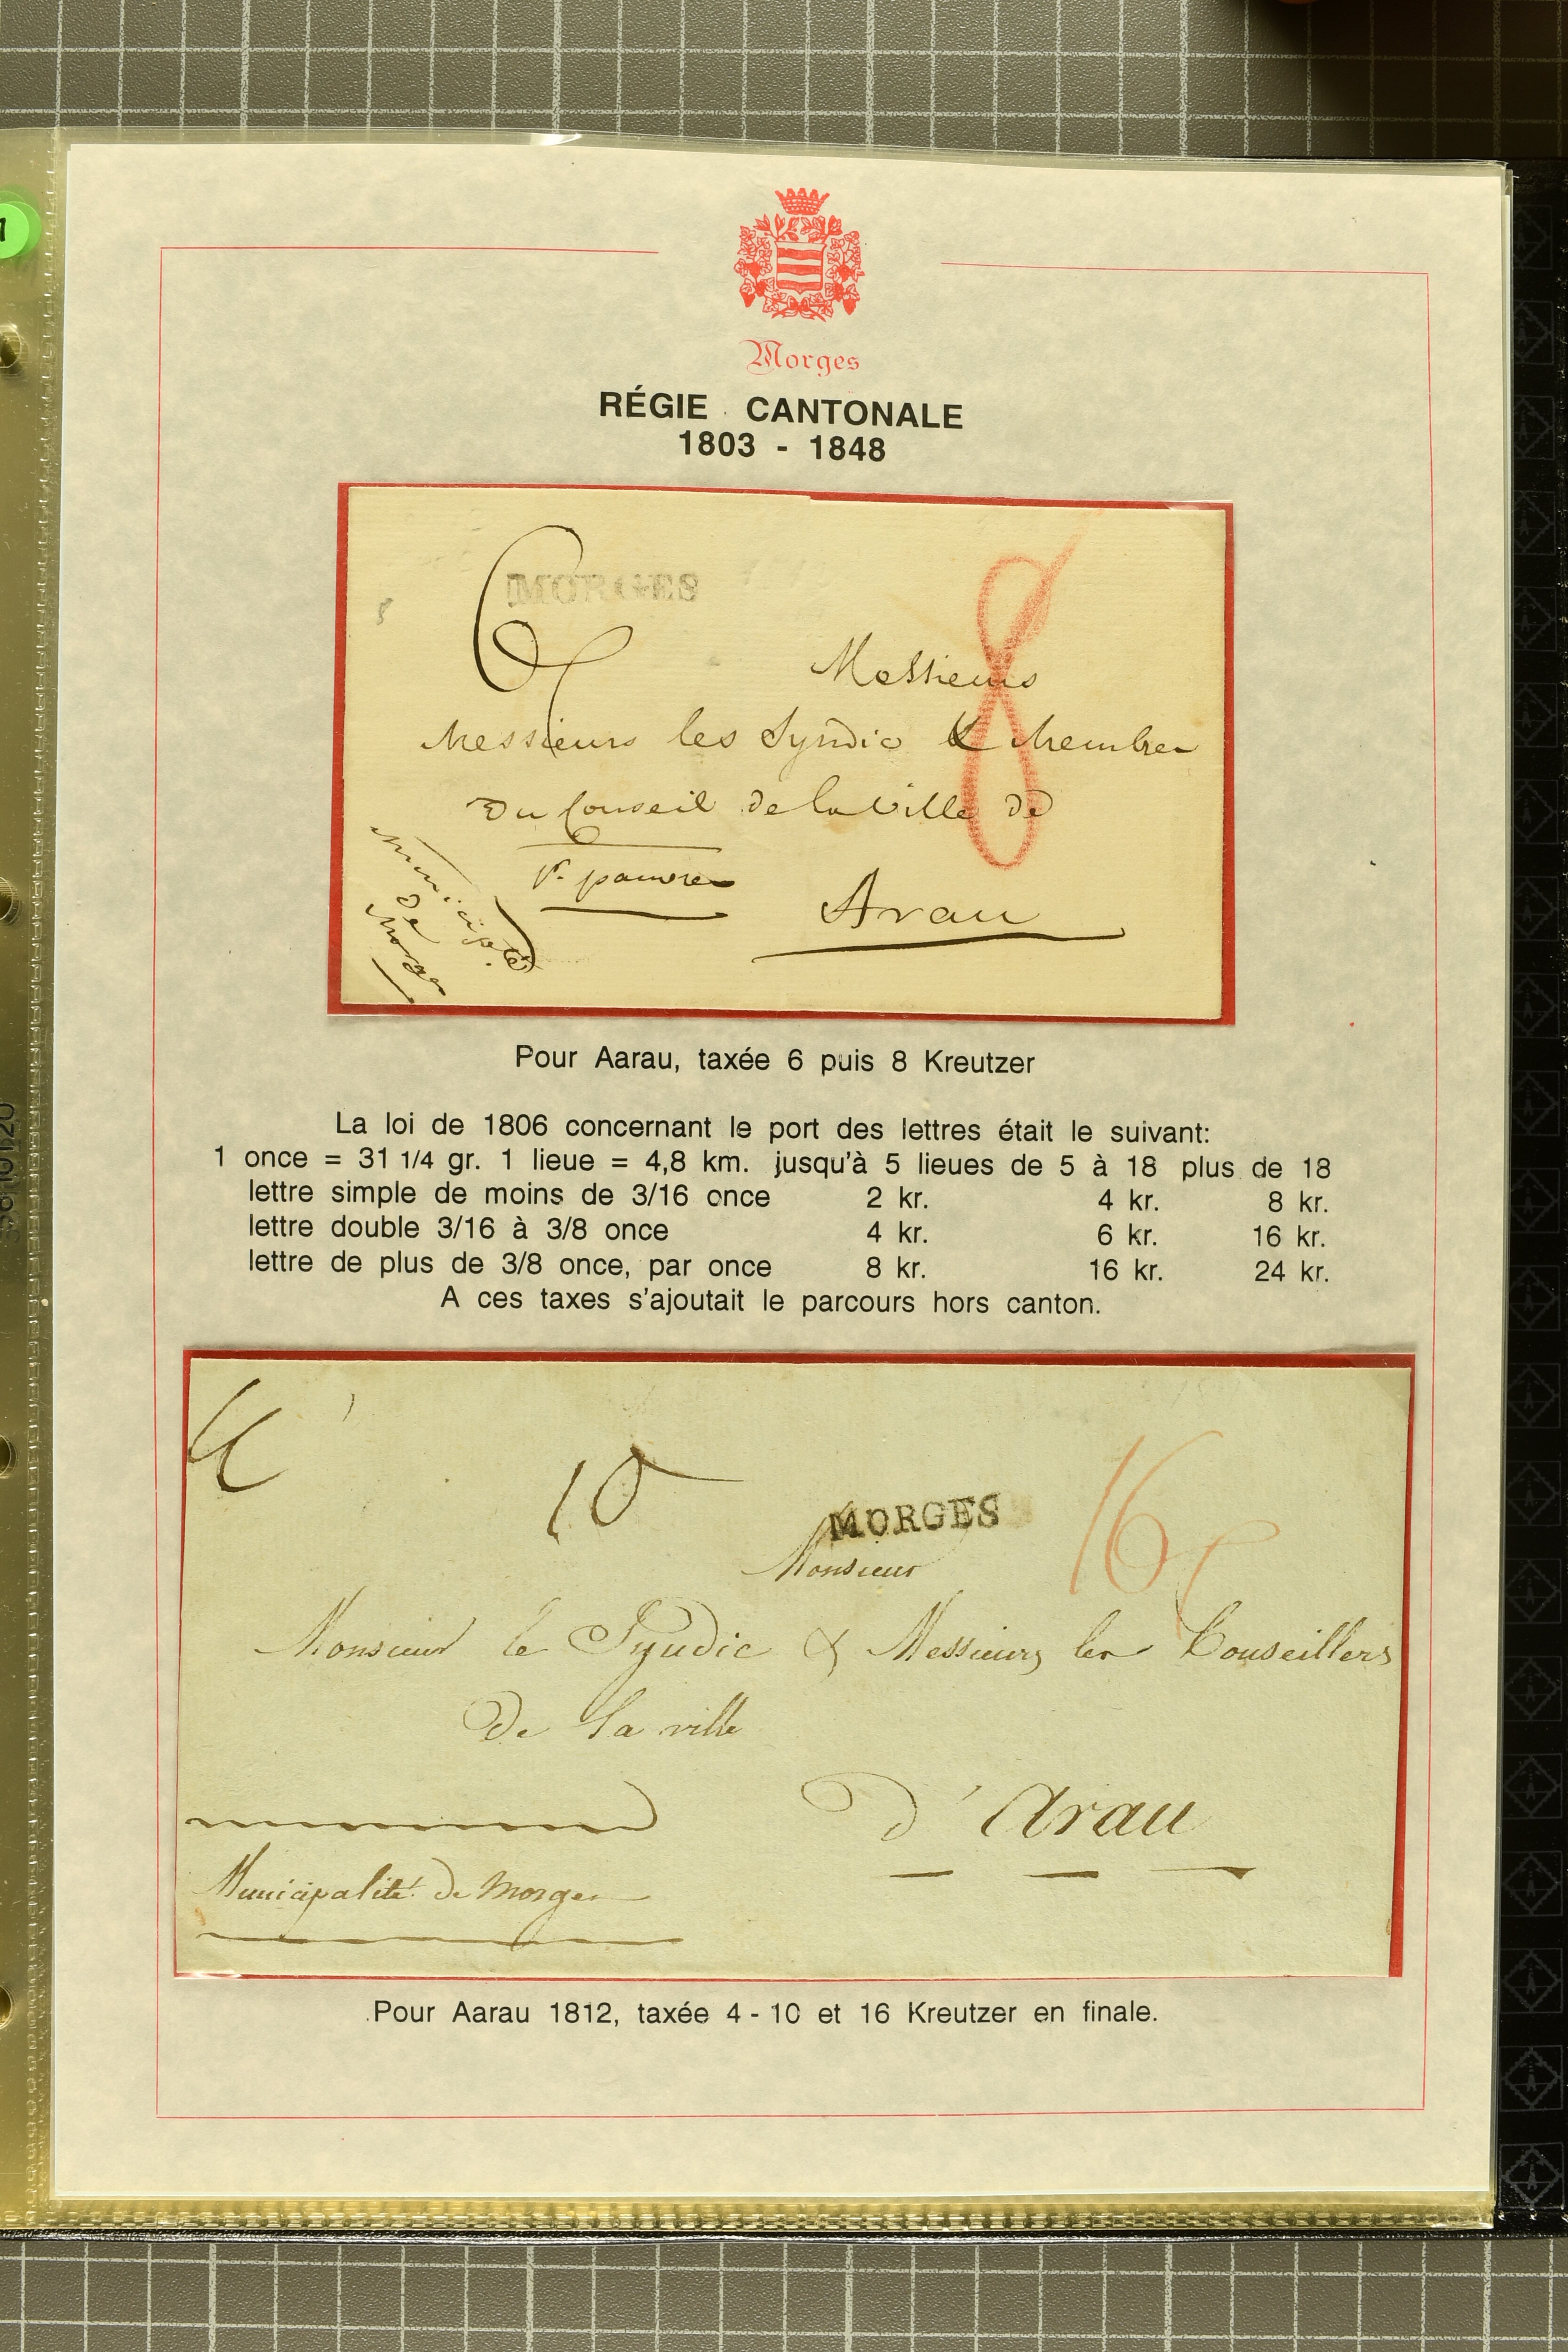 Morges
RÉGIE CANTONALE
1803 - 1848
6
MORGES
8
Messieurs
Messieurs les Syndic & Membres
Du Conseil de la Ville de
Arau
Municipté.
de
Morges
Pour Aarau, taxée 6 puis 8 Kreutzer
La loi de 1806 concernant le port des lettres était le suivant:
1 once = 31 1/4 gr. 1 lieue = 4,8 km. jusqu'à 5 lieues de 5 à 18 plus de 18
lettre simple de moins de 3/16 once 2 kr. 4 kr. 8 kr.
lettre double 3/16 à 3/8 once 4 kr. 6 kr. 16 kr.
lettre de plus de 3/8 once, par once 8 kr. 16 kr. 24 kr.
A ces taxes s'ajoutait le parcours hors canton.
4
10
MORGES
16
Monsieur
Monsieur le Syndic & Messieurs les Conseillers
De la ville
d'Arau
Municipalité de Morges
Pour Aarau 1812, taxée 4 - 10 et 16 Kreutzer en finale.